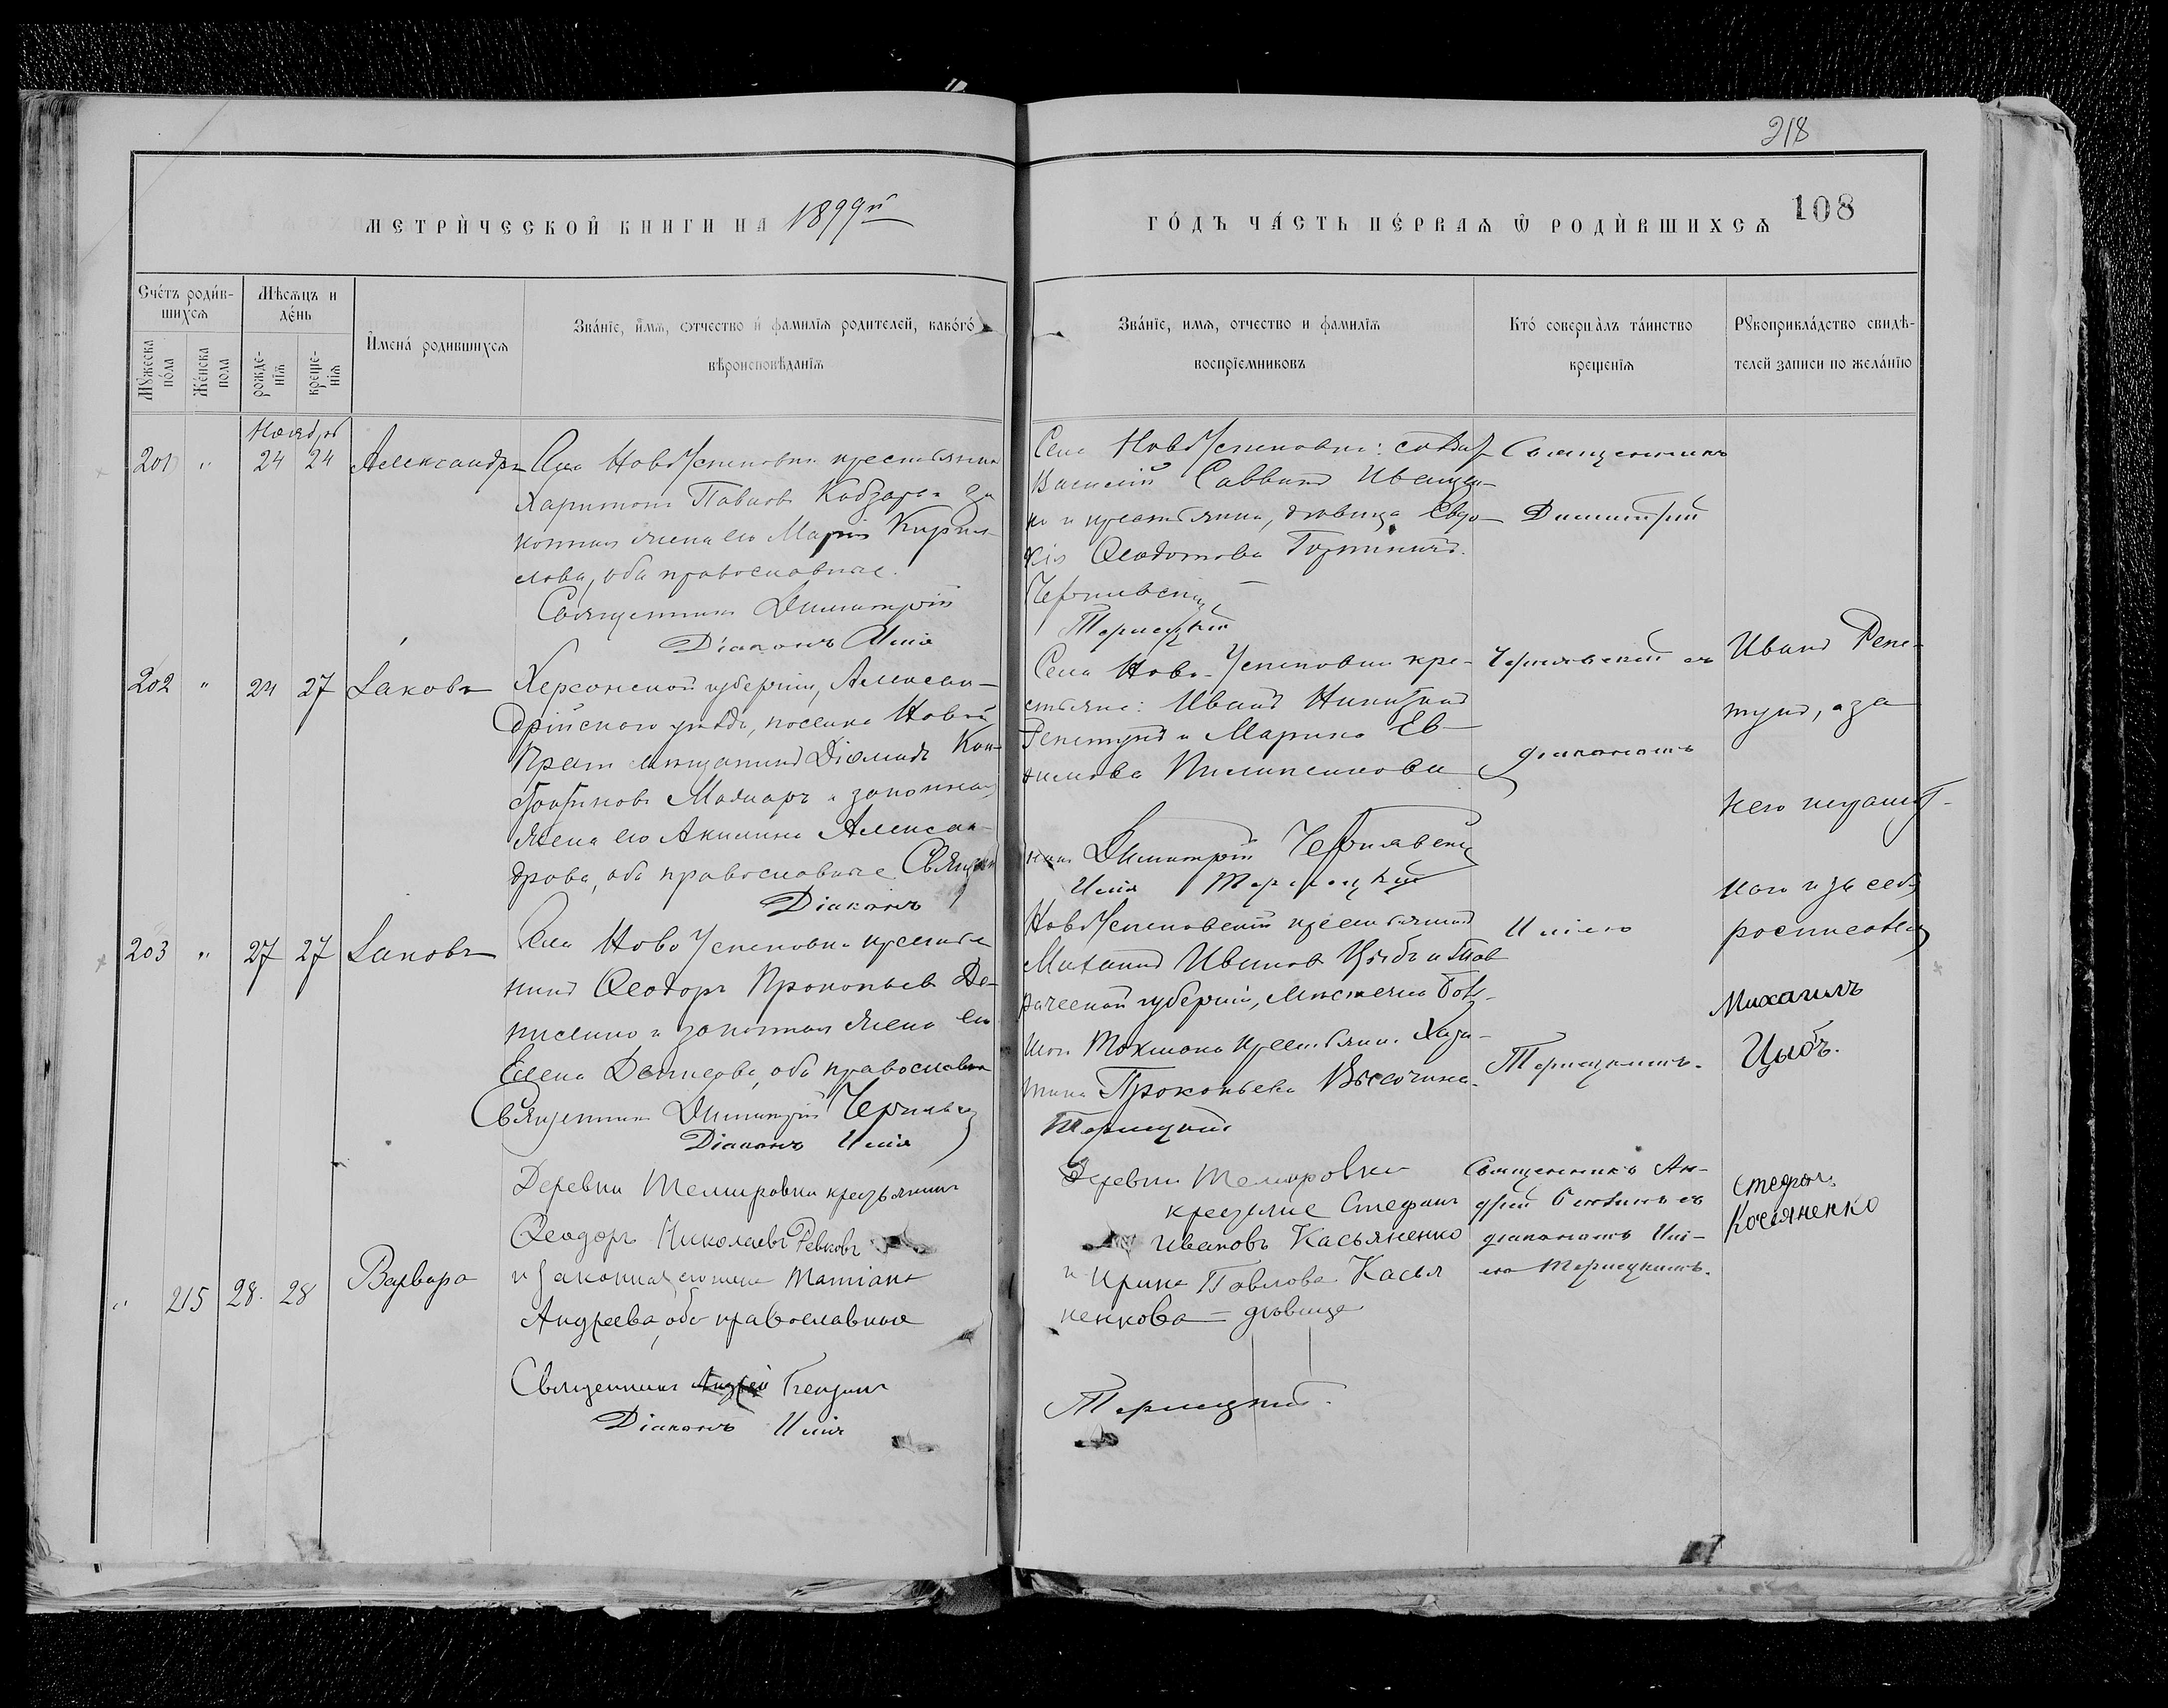 218
108
МЕТРИ́ЧЕСКОЙ КНИГИ НА 1899й
ГО́ДЪ ЧА́СТЬ ПЕ́РВАѦ Ѡ РОДИ́ВШИХСѦ
Сче́тъ роди́в-
шихсѧ
Мѣсѧцъ и
де́нь
И́мена́ родившихсѧ
Зва́нїе, и́мѧ, отчество и́ фамилїѧ родителей, како́го́
вѣроисповѣданїѧ
Мꙋ́жеска
по́ла
Же́нска
пола
рожде-
нїѧ
креще-
нїѧ
Зва́нїе, имѧ, отчество и фамилїѧ
воспрїемниковъ
Кто́ соверша́лъ та́инство
крещенїѧ
Рꙋкоприкла́дство свидѣ-
телей записи по жела́нїю
Ноябрь
201 " 24 24 Александръ
Села НовоУспеновки крестьянинъ
Харитонъ Павловъ Кобзарь и за
конная жена его Марія Кирил
лова, оба православные.
Священникъ Димитрій
Діаконъ Илія
Села НовоУспеновки: солдатъ
Василій Саввинъ Иващен-
ко и крестьянка, дѣвица Евдо-
кія Ѳеодотова
Чернявскій
Терлецкій
Священникъ
Димитрій
202 " 24 27 Іаковъ
Херсонской губерніи, Алексан-
дрійскаго уѣзда, поселка Новой
Праги мѣщанинъ Діомидъ Кон-
дратиковъ Мадяръ и законная
жена его Акилина Алексан-
дрова, оба православные Священ
Діаконъ
Села Ново-Успеновки кре-
стьяне: Иванъ Никитинъ
Репетунъ и Марина Ев-
никъ Димитрій Чернявскій
Илія Терлецкій
Чернявскій съ
діакономъ
Иванъ Репе-
тунъ, а за
него неграмот-
наго и за себя
росписался
203 " 27 27 Іаковъ
Села Ново Успеновки крестья
нинъ Ѳеодоръ Прокопьевъ Де-
нисенко и законная жена его
Елена Денисова, оба православные
Священникъ Димитрій Чернявскій
Діаконъ Илія
НовоУспеновскій крестьянинъ
Михаилъ Ивановъ Цыбъ и Тав
рической губерніи, мѣстечка Боль-
шого Токмака крестьянка Хари-
тина Прокопьева Высочина.
Терлецкій
Иліею
Терлецкимъ.
Михаилъ
Цыбъ.
" 215 28 28 Варвара
Деревни Темировки крестьянинъ
Ѳеодоръ Николаевъ Ревковъ
и законная его жена Татіана
Андреева, оба православные
Священникъ Андрей
Діаконъ Илія
Деревни Темировки
крестьяне Стефанъ
Ивановъ Касьяненко
и Ирина Павлова Касья
ненкова — дѣвица
Терлецкій.
Священникъ Ан-
дрей съ
діакономъ Илі-
ею Терлецкимъ.
Стефанъ
Косяненко